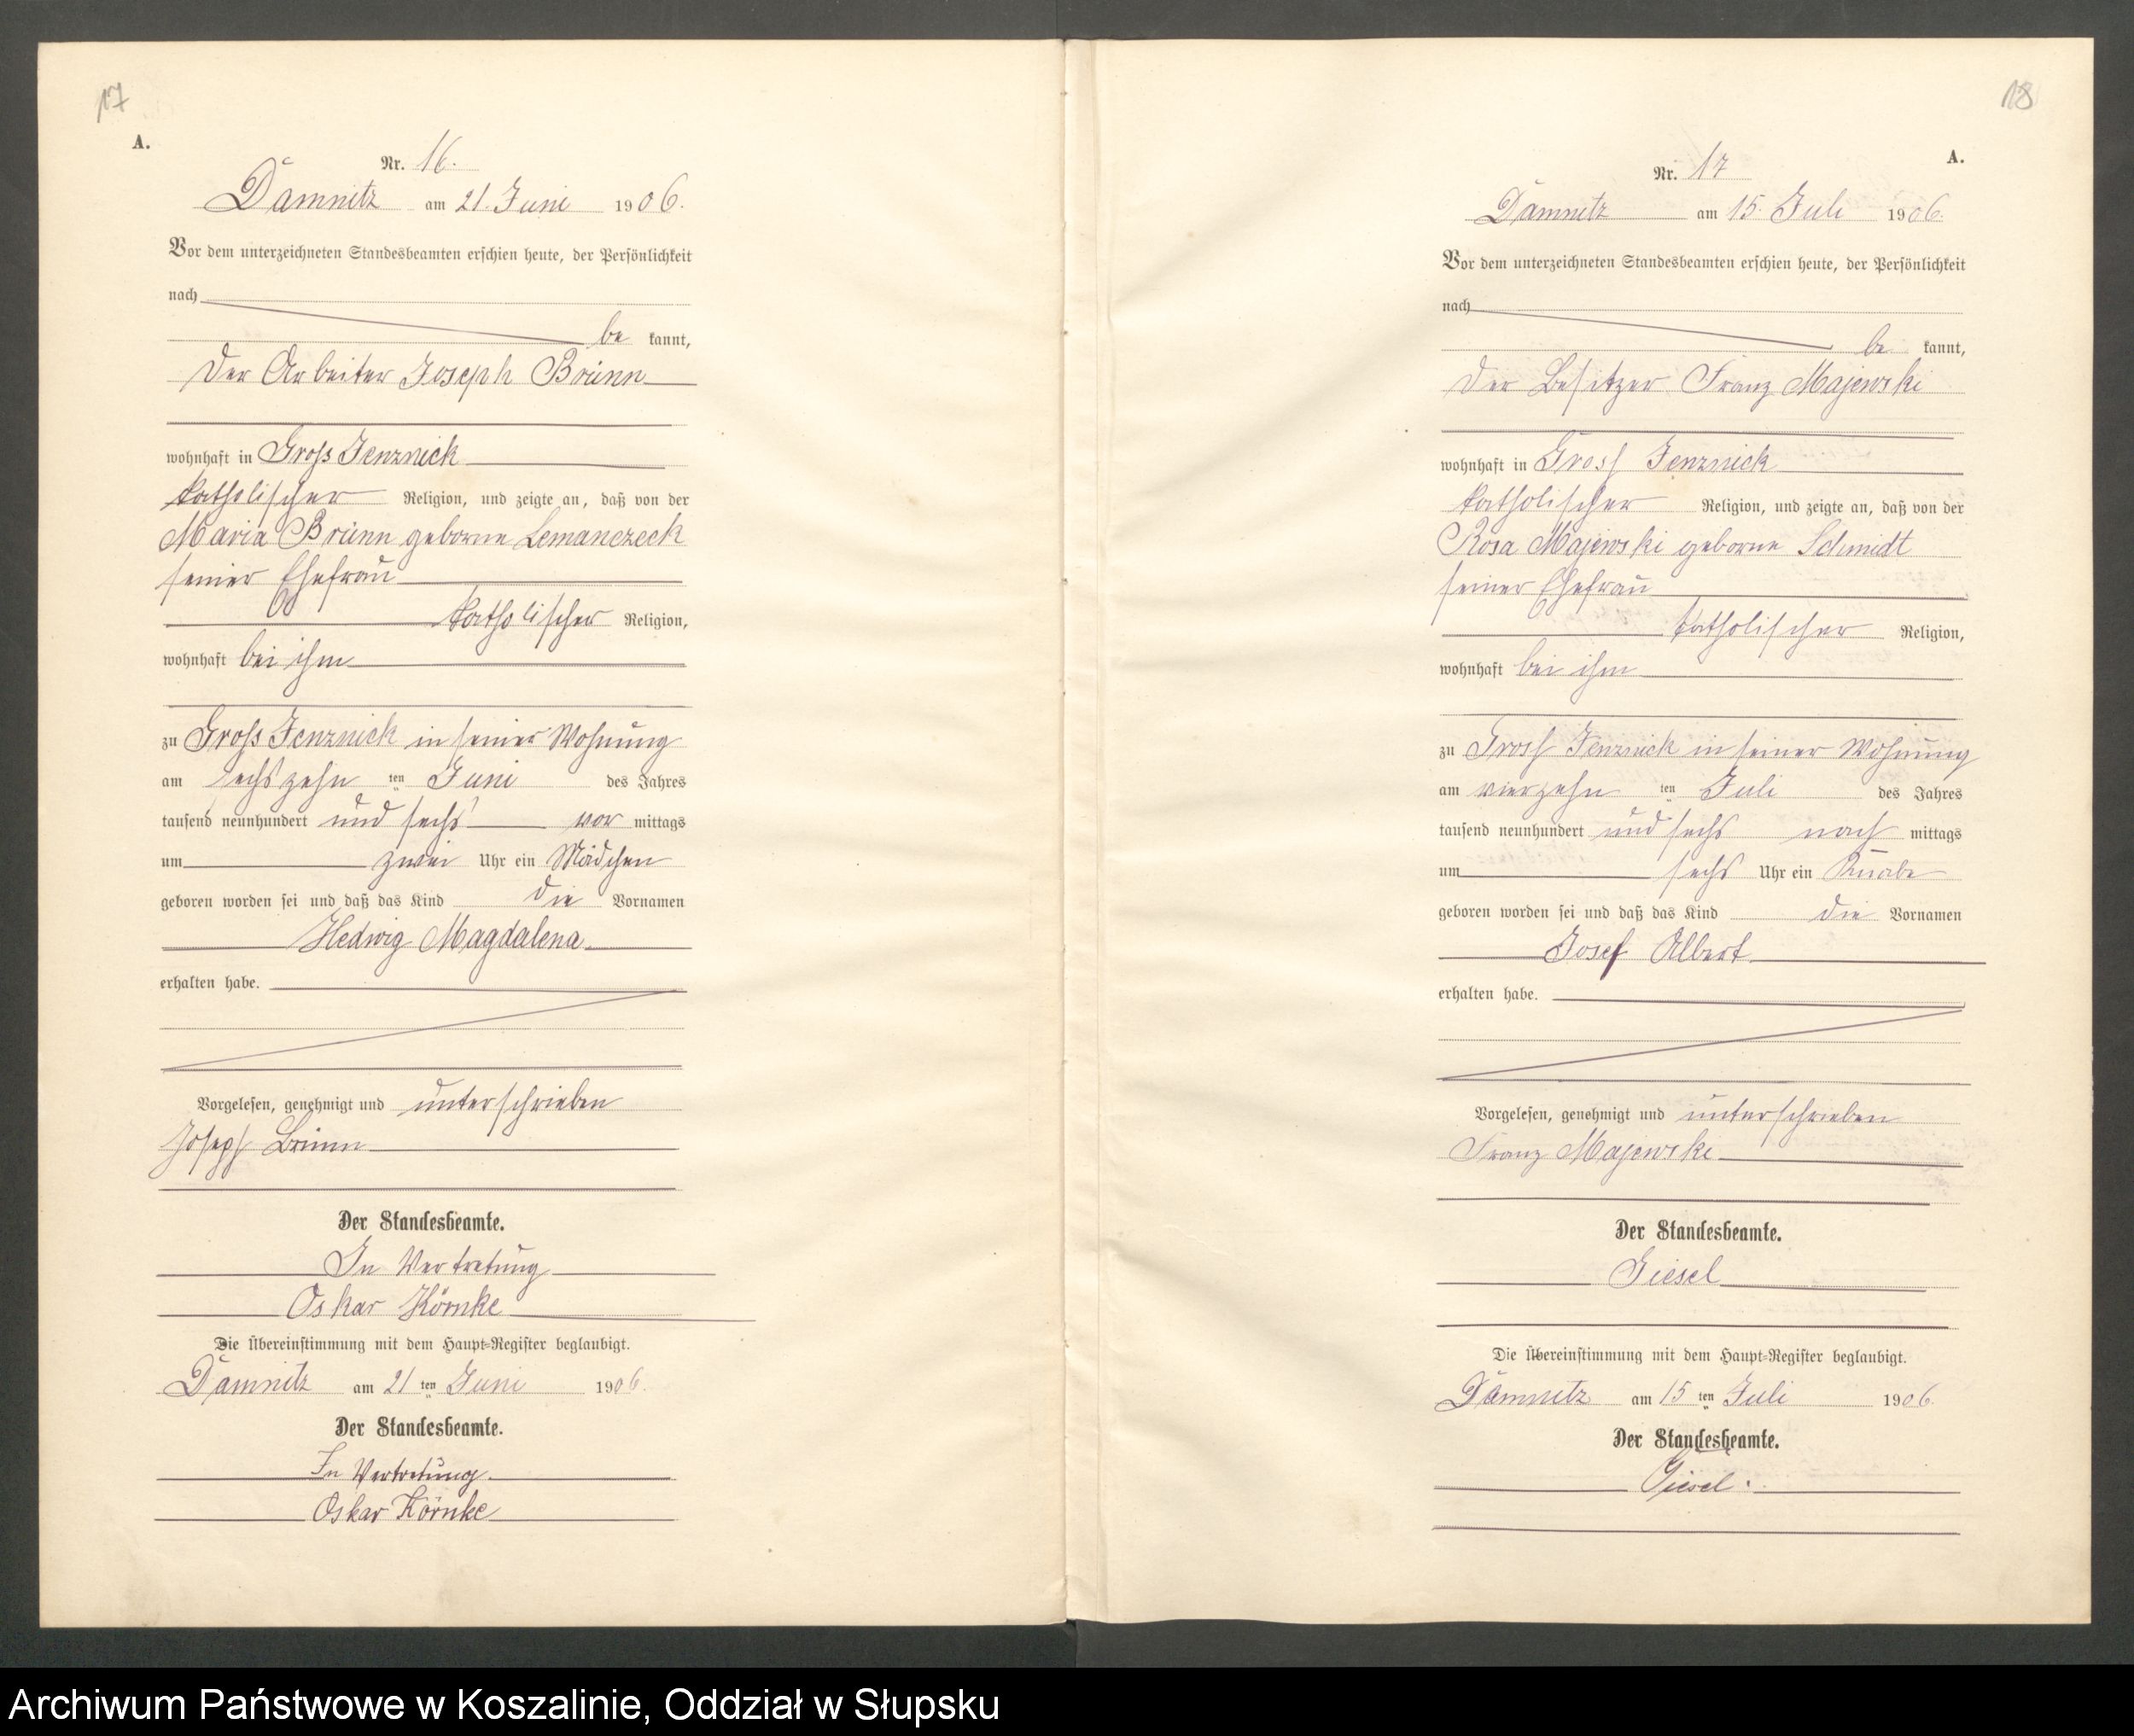 17
A.
Nr. 16.
Damnitz am 21. Juni 1906.
Vor dem unterzeichneten Standesbeamten erschien heute, der Persönlichkeit
nach
be kannt,
der Arbeiter Joseph Brünn
wohnhaft in Gross Jenznick
katholischer Religion, und zeigte an, daß von der
Maria Brünn geborne Lemanczeck
seiner Ehefrau
katholischer Religion,
wohnhaft bei ihm
zu Gross Jenznick in seiner Wohnung
am sechszehn ten Juni des Jahres
tausend neunhundert und sechs vor mittags
um zwei Uhr ein Mädchen
geboren worden sei und daß das Kind die Vornamen
Hedwig Magdalena
erhalten habe.
Vorgelesen, genehmigt und unterschrieben
Joseph Brünn
Der Standesbeamte.
In Vertretung
Oskar Körnke
Die Übereinstimmung mit dem Haupt-Register beglaubigt.
Damnitz am 21 ten Juni 1906.
Der Standesbeamte.
In Vertretung.
Oskar Körnke
18
A.
Nr. 17
Damnitz am 15. Juli 1906.
Vor dem unterzeichneten Standesbeamten erschien heute, der Persönlichkeit
nach
be kannt,
der Besitzer Franz Majewski
wohnhaft in Gross Jenznick
katholischer Religion, und zeigte an, daß von der
Rosa Majewski geborne Schmidt
seiner Ehefrau
katholischer Religion,
wohnhaft bei ihm
zu Gross Jenznick in seiner Wohnung
am vierzehn ten Juli des Jahres
tausend neunhundert und sechs nach mittags
um sechs Uhr ein Knabe
geboren worden sei und daß das Kind die Vornamen
Josef Albert
erhalten habe.
Vorgelesen, genehmigt und unterschrieben
Franz Majewski
Der Standesbeamte.
Giesel
Die Übereinstimmung mit dem Haupt-Register beglaubigt.
Damnitz am 15 ten Juli 1906.
Der Standesbeamte.
Giesel.
Archiwum Państwowe w Koszalinie, Oddział w Słupsku